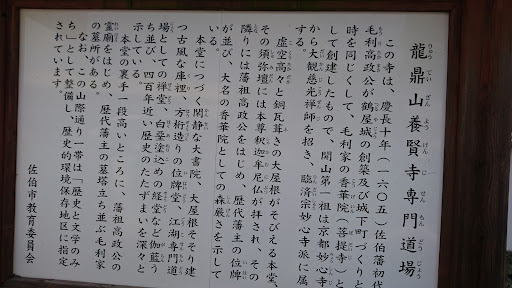 龍鼎山養賢寺専門道場
この寺は、慶長十年(一六〇五)佐伯藩初代
毛利高政公が鶴屋城の創築及び城下町づくりと
時を同じくして、毛利家の香華院(菩提寺)と
して創建したもので、開山第一祖は京都妙心寺
から大観慈光禅師を招き、臨済宗妙心寺派に属
している。
虚空高々と銅瓦葺きの大屋根がそびえる本堂、
その須弥壇には本尊釈迦牟尼仏が拝され、その
隣りには藩祖高政公をはじめ、歴代藩主の位牌
が並び、大名の香華院としての森厳さを示して
いる。
本堂につづく閑静な大書院、大屋根そそり建
つ古風な庫裡、方桁造りの位牌堂、江湖専門道
場としての禅堂、白堊塗込めの経堂など伽藍う
ち並び、四百年近い歴史のたたずまいを深々と
示している。
本堂の裏手一段高いところに、藩祖高政公の
霊廟をはじめ、歴代藩主の墓塔立ち並ぶ毛利家
の墓所がある。
なお、この山際通り一帯は「歴史と文学のみ
ち」として整備し、歴史的環境保存地区に指定
されています。
佐伯市教育委員会